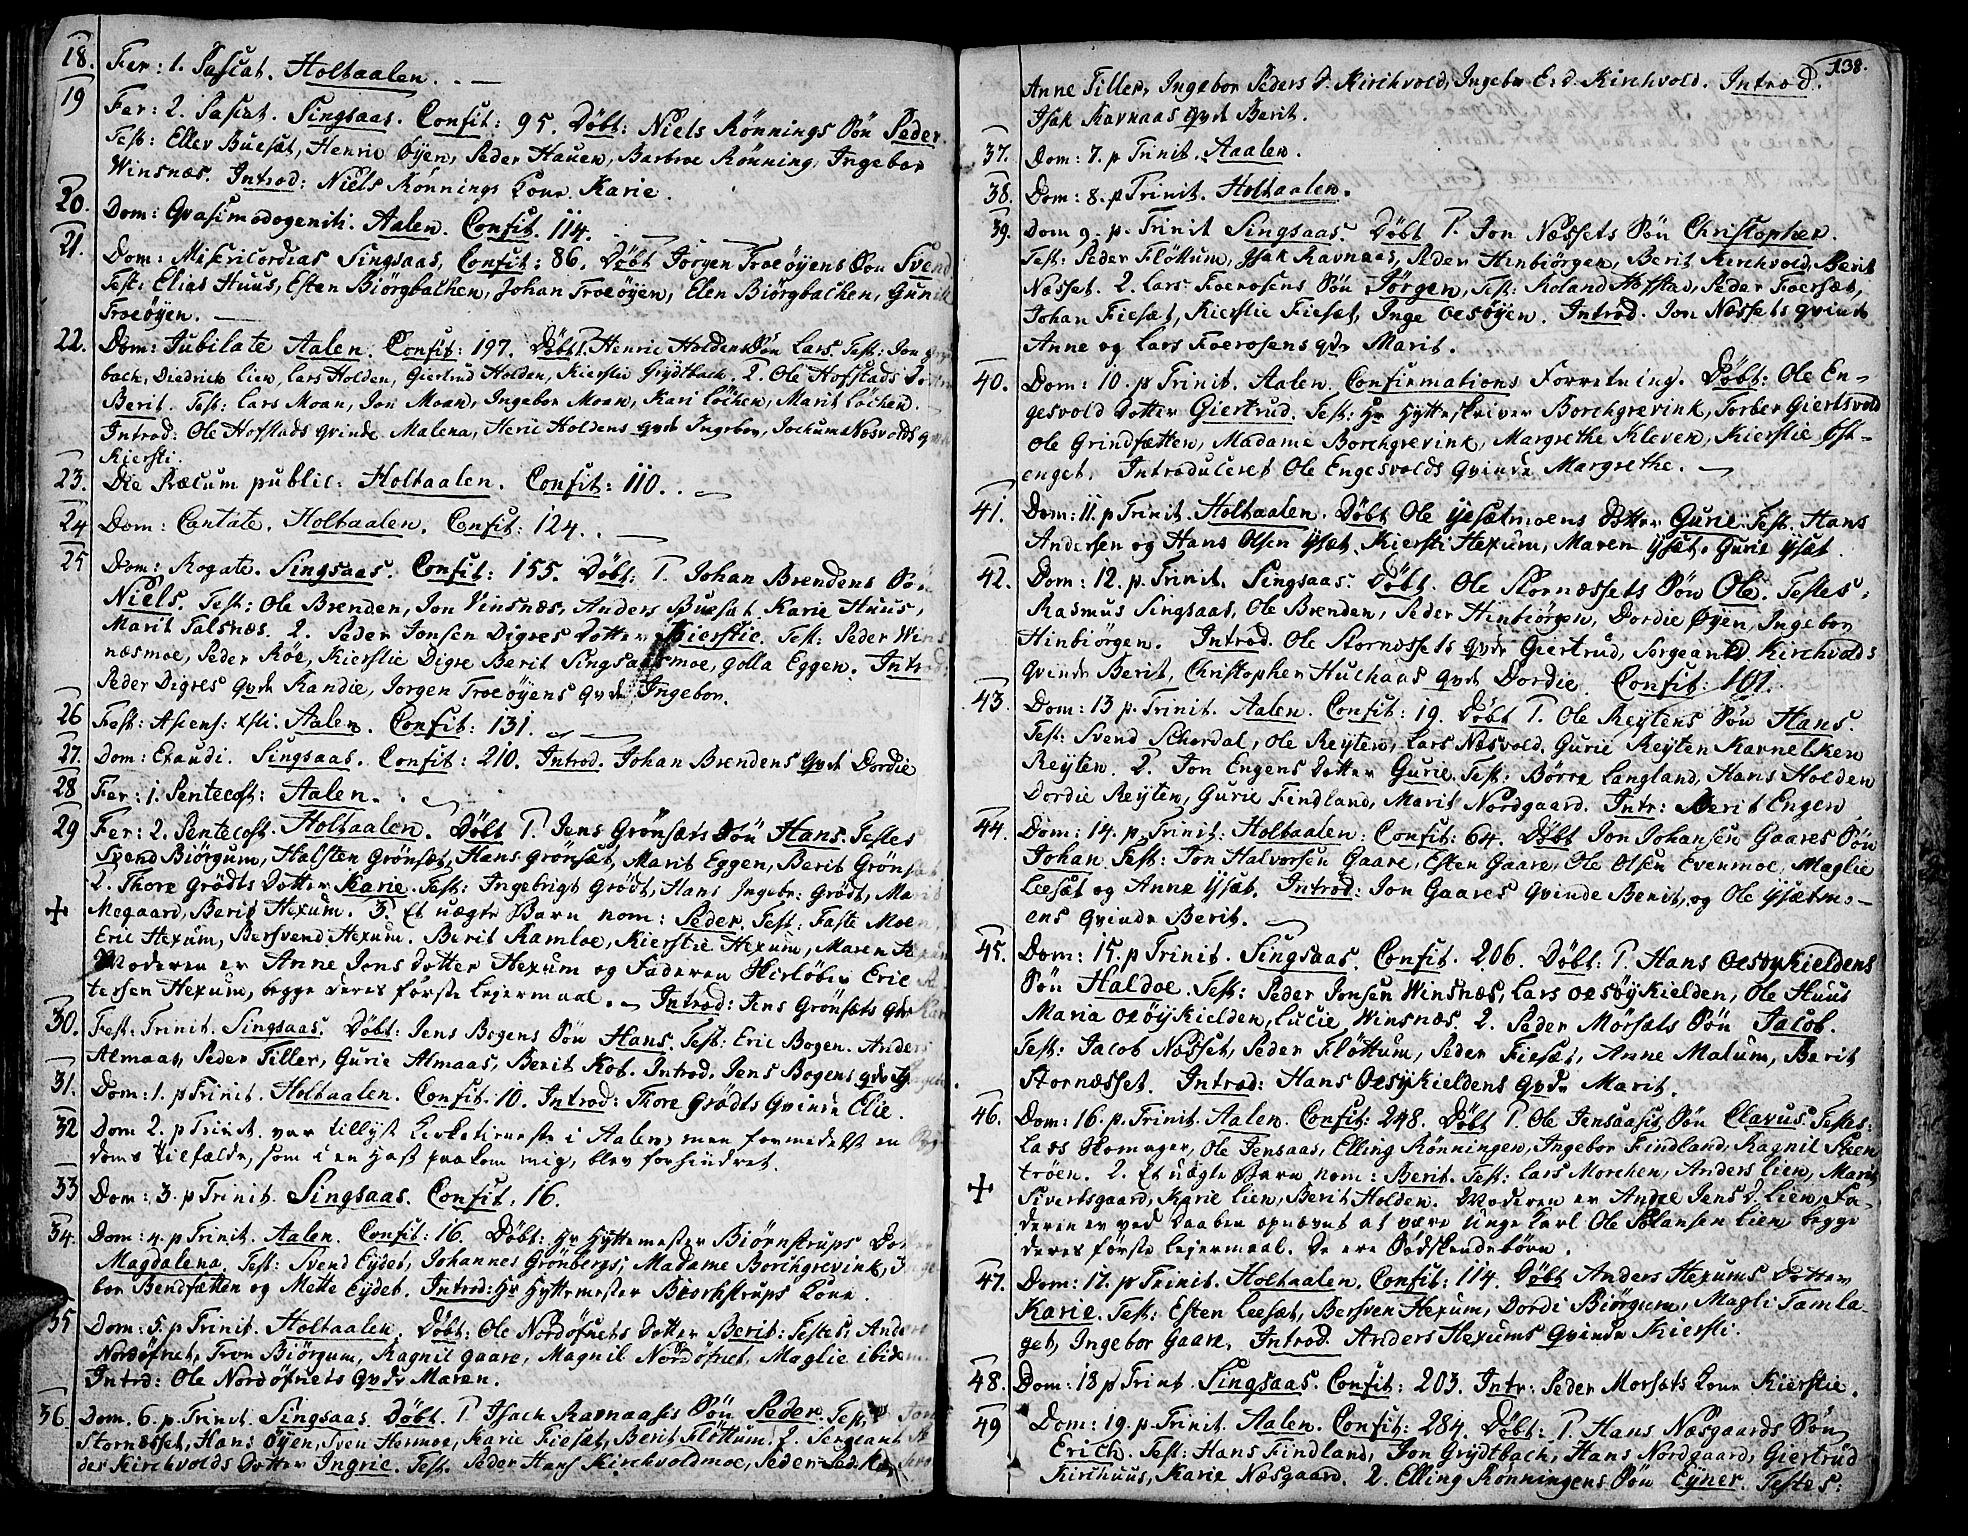 18. Fer: 1. Pascat. Holtaalen.
19 Fer: 2. Pascat. Singsaas. Confit: 95. Døbt: Niels Rønnings Søn Peder.
Test: Eller Buesæt, Henric Øyen, Peder Hauen, Barbroe Rønning, Ingebor
Winsnæs. Introd: Niels Rønnings Kone Karie.
20. Dom: Qvasimodogeniti. Aalen. Confit. 114.
21. Dom: Misericordias Singsaas, Confit: 86. Døbt Jørgen Troeøyens Søn Svend
Test: Elias Huus, Esten Biörgbakken, Johan Troeøyen, Elen Biörgbakken, Gunil
Troeøyen.
22. Dom: Jubilate Aalen. Confit: 197. Døbt 1. Henric Holdens Søn Lars. Test: Jon
bach, Diedrich Lien, Lars Holden, Giertrud Holden, Kierstie Grydtbach. 2. Ole Hofstads Dotter
Berit. Test: Lars Moan, Jon Moan, Ingebor Moan, Kari Løchen, Marit Løchen.
Introd: Ole Hofstads Qvinde Malena, Henric Holdens qvde Ingebor, Jochum Næsvolds
Kiersti.
23. Die Præcum public: Holtaalen. Confit: 110.
24 Dom: Cantate. Holtaalen. Confit: 124.
25 Dom: Rogate. Singsaas. Confit: 155. Døbt: 1. Johan Brendens Søn
Niels. Test: Ole Brenden, Jon Vinsnæs, Anders Buesæt, Karie Huus,
Marit Talsnæs. 2. Peder Jonsen Digres Dotter Kierstie. Test: Peder Wins
næsmoe, Peder Røe, Kierstie Digre Berit Singsaasmoe, Golla Eggen. Introd:
Peder Digres Qvde Randie, Jorgen Troeøyens qvde Ingebor.
26 Fest: Ascens: Xsti. Aalen. Confit: 131.
27. Dom: Exaudi. Singsaas. Confit: 210. Introd. Johan Brendens Qvde Dordie
28 Fer: 1. Pentecost: Aalen.
29 Fer: 2. Pentecost. Holtaalen. Døbt 1. Jens Grønsæts Søn Hans. Testes
Svend Biörgum, Halsten Grönsæt, Hans Grønsæt, Marit Eggen, Berit Grønsæt
2. Thore Grødts Dotter Karie. Test: Ingebrigt Grødt, Hans Ingebr: Grødt, Marit
Megaard, Berit Hexum. 3. Et uægte Barn nom: Peder. Test: Faste Moen,
Eric Hexum, Bersvend Hexum. Berit Ramloe, Kierstie Hexum, Maren
Moderen er Anne Jons dotter Hexum og Faderen Eric
tersen Hexum, begge deres første lejermaal. Introd: Jens Grønsæts Qvde
30. Fest: Trinit. Singsaas. Døbt: Jens Bogens Søn Hans. Test: Eric Bogen. Anders
Almaas, Peder Tiller, Gurie Almaas, Berit Kob. Introd. Jens Bogens qvde
31. Dom: 1. p Trinit. Holtaalen. Confit. 10. Introd: Thore Grødts Qvinde Elie.
32 Dom 2. p Trinit. var tillyst Kirketieneste i Aalen, men formedelst en
doms tilfælde, som i en hast paakom mig, blev forhindret.
33 Dom: 3. p Trinit. Singsaas. Confit. 16.
34. Dom: 4. p Trinit. Aalen. Confit: 16. Døbt: Hr Hyttemester Biørnstrups Dotter
Magdalena. Test: Svend Eydet, Johannes Grönbergs, Madame Borchgrevink,
bor Bendfætten og Mette Eydet. Introd: Hr Hyttemester Biørnstrups Kone.
35 Dom: 5. p Trinit. Holtaalen. Døbt: Ole Nordöfnets Dotter Berit: Testes: Anders
Nordøfnet, Tron Biörgum, Ragnil Gaare, Magnil Nordøfnet, Maglie ibidem.
Introd: Ole Nordøfnets Qvde Maren.
36 Dom. 6. p Trinit. Singsaas. Døbt. 1. Isach Ravnaases Søn Peder. Test:
Stornæsset, Hans Øyen, Sven Hermoe, Karie Fiesæt, Berit Fløttum. 2. Sergeant
der Kirchvolds Dotter Ingrie. Test: Peder Hans Kirchvoldmoe, Peder
138.
Anne Tiller, Ingebor Peders d. Kirchvold, Ingebor E: d. Kirchvold. Introd.
Isak Ravnaas qvde Berit.
37. Dom: 7. p Trinit. Aaalen.
38. Dom: 8. p Trinit. Holtaalen.
39. Dom 9. p. Trinit Singsaas. Døbt 1. Jon Næssets Søn Christopher.
Test: Peder Fløttum, Isak Ravnaas, Peder Hinbiörgen, Berit Kirchvold, Berit
Næsset. 2. Lars Foerosens Søn Jörgen, Test: Roland Hofstad, Peder Foersæt,
Johan Fiesæt, Kierstie Fiesæt, Inge Oesøyen. Introd. Jon Næssets qvinde
Anne og Lars Foerosens qvde Marit.
40. Dom: 10. p Trinit. Aalen. Confirmations Forretning. Døbt: Ole En-
gesvold Dotter Giertrud. Test: Hr Hytteskriver Borchgrevink, Torber Giertsvold
Ole Grindfætten, Madame Borchgrevink, Margrethe Kleven, Kierstie Öst-
enget. Introduceret Ole Engesvolds Qvinde Margrethe.
41. Dom: 11. p Trinit. Holtaalen. Døbt Ole Ysætmoens Dotter Gurie. Test. Hans
Andersen og Hans Olsen Ysæt, Kiersti Hexum, Maren Ysæt, Gurie Ysæt.
42. Dom: 12. p. Trinit. Singsaas. Døbt. Ole Stornæssets Søn Ole. Testes:
Rasmus Singsaas, Ole Brenden, Peder Hinbiörgen, Dordie Øyen, Ingebor
Hinbiörgen. Introd. Ole Stornæssets qvde Giertrud, Sergeant Kirchvolds
Qvinde Berit, Christopher Huchaas qvde Dordie. Confit: 101.
43. Dom: 13 p. Trinit. Aalen. Confit: 19. Døbt 1. Ole Reytens Søn Hans.
Test: Svend Schordal, Ole Reyten, Lars Næsvold, Gurie Reyten Karnelken
Reyten. 2. Jon Engens Dotter Gurie. Test: Børre Langland, Hans Holden
Dordie Reyten, Gurie Findland, Marit Nordgaard. Intr: Berit Engen
44. Dom: 14. p. Trinit: Holtaalen: Confit: 64. Døbt Jon Johansen Gaares Søn
Johan Test: Jon Halvorsen Gaare, Esten Gaare, Ole Olsen Evenmoe, Maglie
Leesæt og Anne Ysæt. Introd: Jon Gaares Qvinde Berit, og Ole Ysætmo-
ens Qvinde Berit.
45. Dom: 15. p Trinit. Singsaas. Confit. 206. Døbt: 1. Hans Oesøykieldens
Søn Haldoe. Test: Peder Jonsen Winsnæs, Lars Oesøykielden, Ole Huus
Maria Oesøykielden, Lucie Winsnæs. 2. Peder Mörsæts Søn Jacob.
Test: Jacob Næsset, Peder Fløttum, Peder Fiesæt, Anne Malum, Berit
Stornæsset. Introd: Hans Oesøykieldens Qvde Marit.
46. Dom: 16. p. Trinit. Aalen. Confit: 248. Døbt 1. Ole Jensaasis Søn Clavus. Testes:
Lars Skomager, Ole Jensaas, Elling Rønningen, Ingebor Findland, Ragnil Sken
trøen. 2. Et uægte Barn nom: Berit. Test: Lars Morchen, Anders Lien, Marit
Sivertsgaard, Karie Lien, Berit Holden. Moderen er Andre Jens d. Lien, Fa-
deren er ved Daaben opnævnt at være Unge Karl Ole Polansen Lien begge
deres første lejermaal. De ere Södskendebörn.
47. Dom: 17. p Trinit. Holtaalen. Confit: 114. Døbt Anders Hexums Dotter
Karie. Test: Esten Leesæt, Bersven Hexum, Dordi Biörgum, Magli Tamla-
get, Ingebor Gaare. Introd. Anders Hexums Qvinde Kiersti.
48. Dom: 18 p Trint. Singsaas. Confit: 203. Intr: Peder Morsæts Kone Kierstie.
49 Dom: 19. p. Trinit. Aalen. Confit: 284. Døbt: 1. Hans Næsgaards Søn
Erich. Test: Hans Findland, Jon Grydtbach, Hans Nordgaard, Giertrud
Kirchuus, Karie Næsgaard. 2. Elling Rønningens Søn Eyner. Testes: